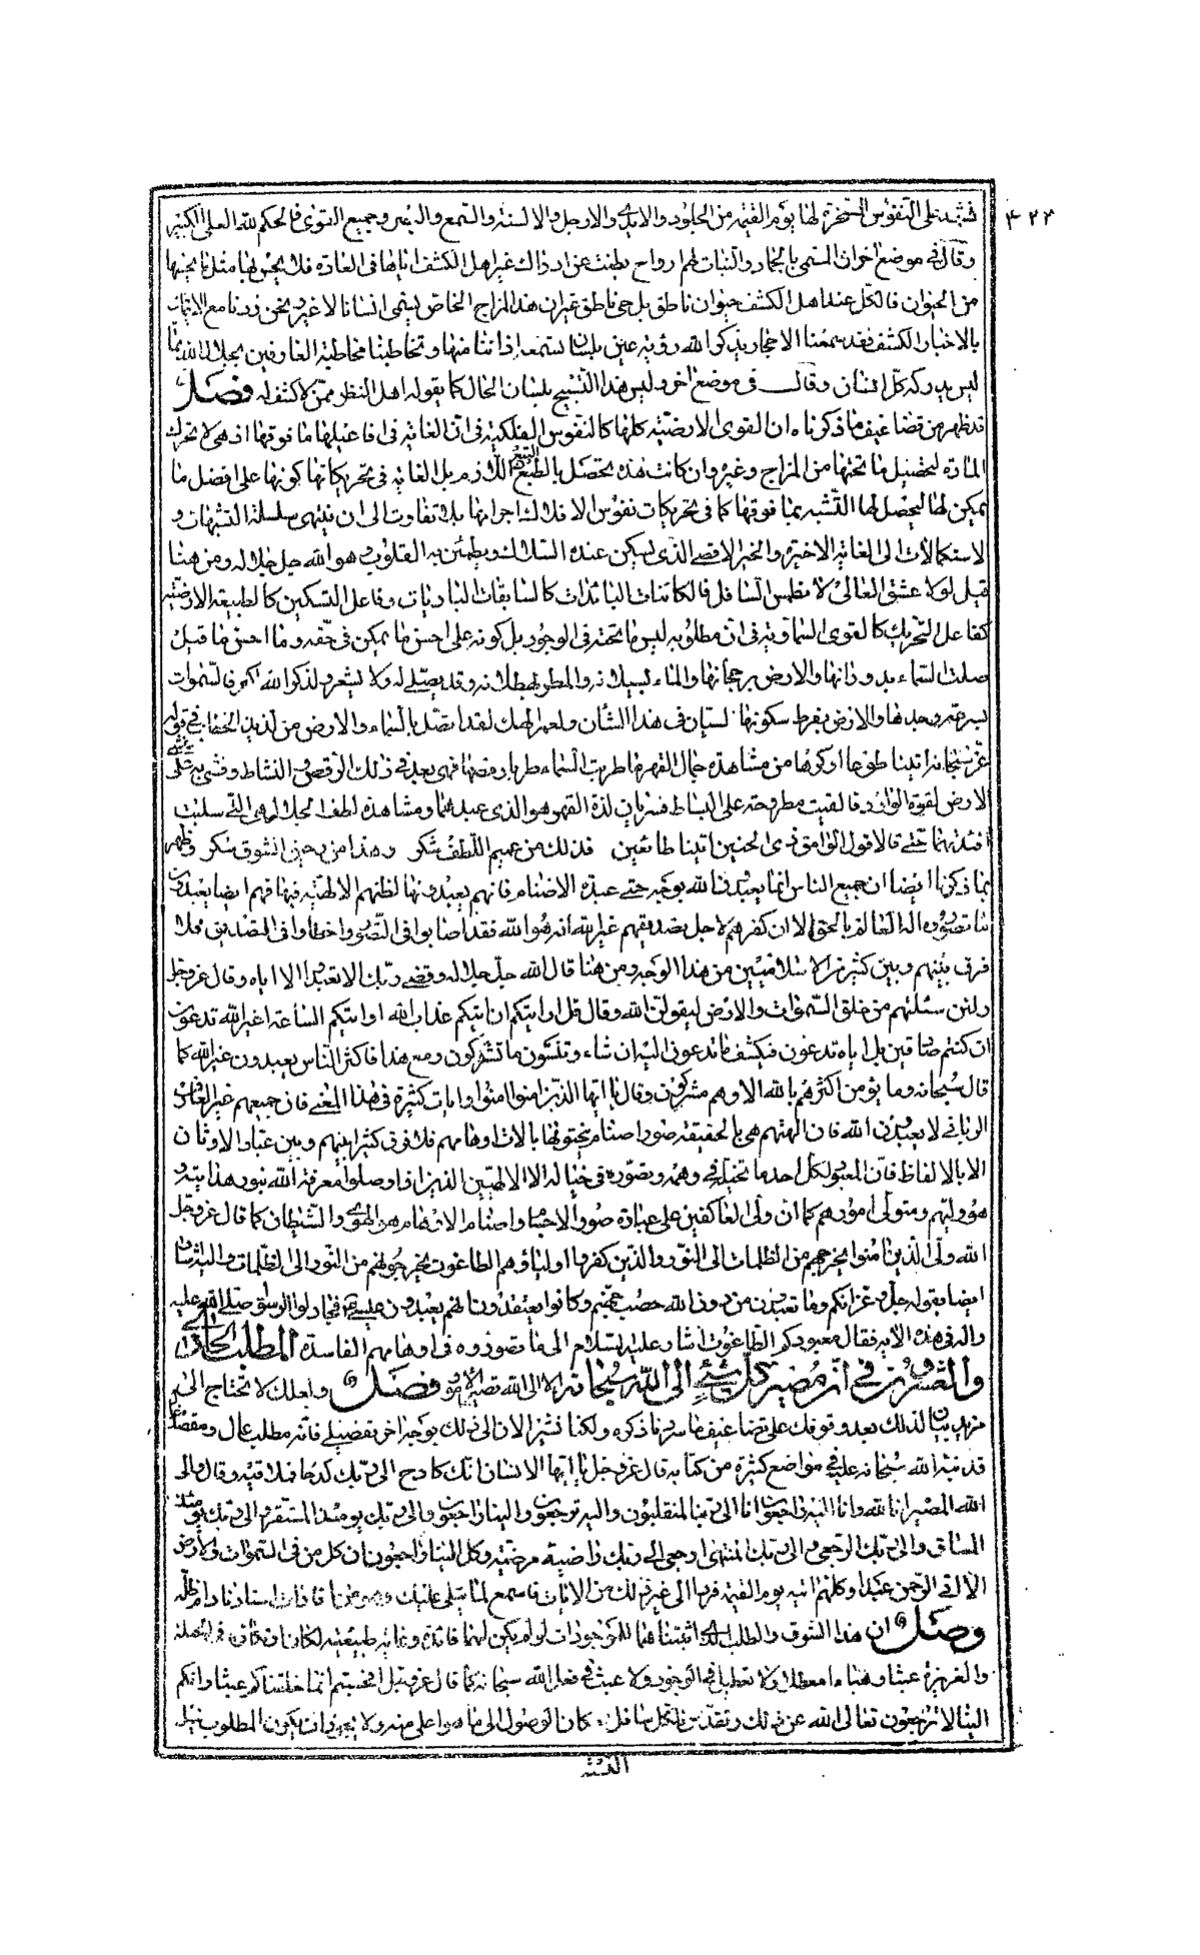 فتشهد على النفوس المسخرة لها يوم القيمة من الجلود والايدي والارجل والالسنة والسمع والبصر وجميع القوى فالحكم لله العلي الكبير
وقال في موضع اخر ان المسمى بالجماد والنبات لهم ارواح بطنت عن ادراك غير اهل الكشف اياها في العادة فلا يحس بها مثل ما يحسها
من الحيوان فالكل عند اهل الكشف حيوان ناطق بل حي ناطق غير ان هذا المزاج الخاص يسمى انسانا لا غير ونحن زدنا مع الايمان
بالاخبار الكشف فقد سمعنا الاحجار يذكر الله رؤية عين بلسان تسمعه اذاننا منها وتخاطبنا مخاطبة العارفين بجلال الله مما
ليس يدركه كل انسان وقال في موضع اخر وليس هذا التسبيح بلسان الحال كما يقوله اهل النظر ممن لا كشف له فصل
قد ظهر من تضاعيف ما ذكرناه ان القوى الارضية كلها كالنفوس الفلكية في ان الغاية في افاعيلها ما فوقها اذ هي لا تحرك
المادة لتحصيل ما تحتها من المزاج وغيره وان كانت هذه تحصل بالتبع اللازم بل الغاية في تحريكاتها كونها على افضل ما
يمكن لها ليحصل لها التشبه بما فوقها كما في تحريكات نفوس الافلاك اجرامها بلا تفاوت الى ان ينتهي سلسلة التشبهات و
الاستكمالات الى الغاية الاخيرة والخير الاقصى الذي يسكن عنده السلاك ويطمئن به القلوب وهو الله جل جلاله ومن هنا
قيل لولا عشق العالي لانطمس السافل فالكائنات البائدات كالسابقات الباديات وفاعل التسكين كالطبيعة الارضية
كفاعل التحريك كالقوى السماوية في ان مطلوبه ليس ما تحته في الوجود بل كونه على احسن ما يمكن في حقه وما احسن ما قيل
صلت السماء بدورانها والارض برجحانها والماء بسيلانه والمطر بهطلانه وقد يصلي له ولا يشعر ولذكر الله اكبر فالسموات
بسرعة وجدها والارض بفرط سكونها لسيان في هذا الشأن ولعمر الهك لقد اتصل بالسماء والارض من لذيذ الخطاب في قوله
عز سبحانه ائتيا طوعا او كرها من مشاهدة جمال القهر ما طربت السماء طربا رقصها فهي بعد في ذلك الرقص والنشاط وغشي به على
الارض لقوة الوارد فالقيت مطروحة على البساط فسريان لذة القهر هو الذي عبدهما ومشاهدة لطف الجلال هي التي سلبت
افئدتهما حتى قالا قول الوامق ذي الحنين اتينا طائعين فذلك من عميم اللطف شكر وهذا من رحيق الشوق سكر وظهر
بما ذكرنا ايضا ان جميع الناس انما يعبدون الله بوجه حتى عبدة الاصنام فانهم يعبدونها لظنهم الالهية فيها فهم ايضا يعبدون
ما تصوروه اله العالم بالحق الا ان كفرهم لاجل تصديقهم غير الله انه هو الله فقد اصابوا في التصور واخطاوا في التصديق فلا
فرق بينهم وبين كثير من الاسلاميين من هذا الوجه ومن هنا قال الله جل جلاله وقضى ربك الا تعبدوا الا اياه وقال عز وجل
ولئن سئلتهم من خلق السموات والارض ليقولن الله وقال قل ارايتكم ان اتيكم عذاب الله او اتيكم الساعة اغير الله تدعون
ان كنتم صادقين بل اياه تدعون فيكشف ما تدعون اليه ان شاء وتنسون ما تشركون ومع هذا فاكثر الناس يعبدون غير الله كما
قال سبحانه وما يؤمن اكثرهم بالله الا وهم مشركون وقال يا ايها الذين امنوا امنوا وايات كثيرة في هذا المعنى فان جميعهم غير العارف
الرباني لا يعبدون الله فان الهتهم هي بالحقيقة صور اصنام ينحتونها بالات اوهامهم فلا فرق كثيرا بينهم وبين عباد الاوثان
الا بالالفاظ فان المعبود لكل احد ما تخيله في وهمه وتصوره في خياله الا الالهيين الذين افادوا وصلوا معرفة الله بنور هدايته و
هو وليهم ومتولي امورهم كما ان ولي العاكفين على عبادة صور الاجسام واصنام الاوهام هو الهوى والشيطان كما قال عز وجل
الله ولي الذين امنوا يخرجهم من الظلمات الى النور والذين كفروا اولياؤهم الطاغوت يخرجونهم من النور الى الظلمات واليه اشار
ايضا بقوله جل وعز انكم وما تعبدون من دون الله حصب جهنم وكانوا يعتقدون انهم يعبدون عيسى فجادلوا الرسول صلى الله عليه
واله في هذه الاية فقال معبودكم الطاغوت اشار عليه السلام الى ما تصوروه في اوهامهم الفاسدة المطلب الحادي
والعشرون في ان مصير كل شئ الى الله سبحانه الا الى الله تصير الامور فصل ولعلك لا تحتاج الى
مزيد بيان لذلك بعد وقوفك على تضاعيف ما سردنا ذكره ولكنا نشير الان الى ذلك بوجه اخر تفضيلي فانه مطلب عال ومقصد غال
قد نبه الله سبحانه عليه في مواضع كثيرة من كتابه قال عز وجل يا ايها الانسان انك كادح الى ربك كدحا فملاقيه وقال والى
الله المصير انا لله وانا اليه راجعون انا الى ربنا لمنقلبون واليه ترجعون والينا راجعون والى ربك يومئذ المستقر والى ربك يومئذ
المساق والى ربك الرجعى والى ربك المنتهى ارجعي الى ربك راضية مرضية وكل الينا راجعون ان كل من في السموات والارض
الا اتي الرحمن عبدا وكلهم اتيه يوم القيمة فردا الى غير ذلك من الايات فاسمع لما يتلى عليك وهو من افادات استاذنا دام ظله
وصل ان هذا الشوق والطلب الذي اثبتناهما للموجودات لو لم يكن لهما فائدة وغاية طبيعية لكان ارتكازه في الجبلة
والغريزة عبثا وهباء معطلا ولا تعطيل في الوجود ولا عبث في فعل الله سبحانه كما قال عز وجل افحسبتم انما خلقناكم عبثا وانكم
الينا لا ترجعون تعالى الله عن ذلك وتقدس فلكل سافل امكان الوصول الى ما هو اعلى منه ولا يجوز ان يكون المطلوب نيل